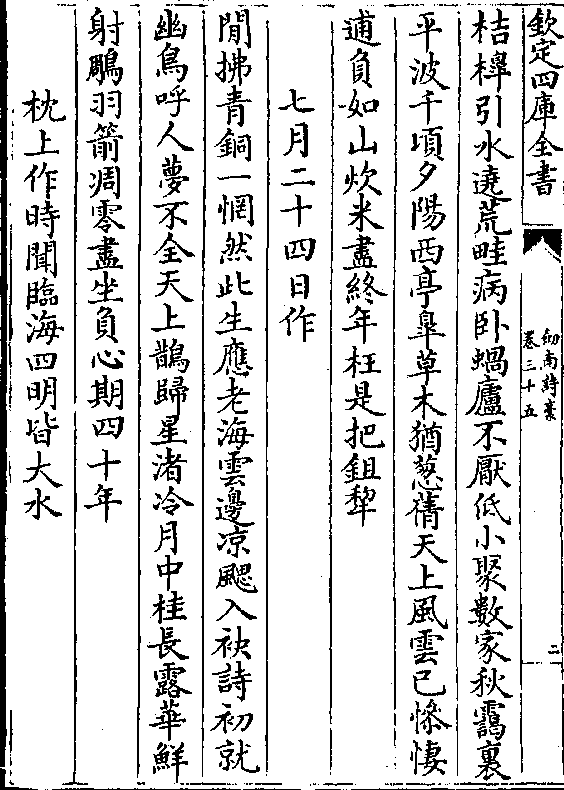 欽定四庫全書
劒南詩稾
卷三十五
二
桔槔引水遶荒畦病卧蝸廬不厭低小聚數家秋靄裏
平波千頃夕陽西亭臯草木猶葱蒨天上風雲已慘悽
逋負如山炊米盡終年枉是把鉏犂
七月二十四日作
閒拂青銅一惘然此生應老海雲邊凉颸入袂詩初就
幽鳥呼人夢不全天上鵲歸星渚冷月中桂長露華鮮
射鵰羽箭凋零盡坐負心期四十年
枕上作時聞臨海四明皆大水